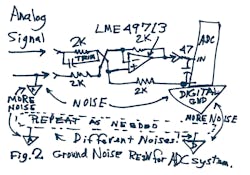 Analog
Signal
LME49713
2K
2K
TRIM
47
ADC
IN
2K
2K
DIGITAL
GND
MORE
NOISE
NOISE
MORE NOISE
REPEAT AS NEEDED
Different Noises.
Fig.2 Ground Noise Rej'n for ADC system.